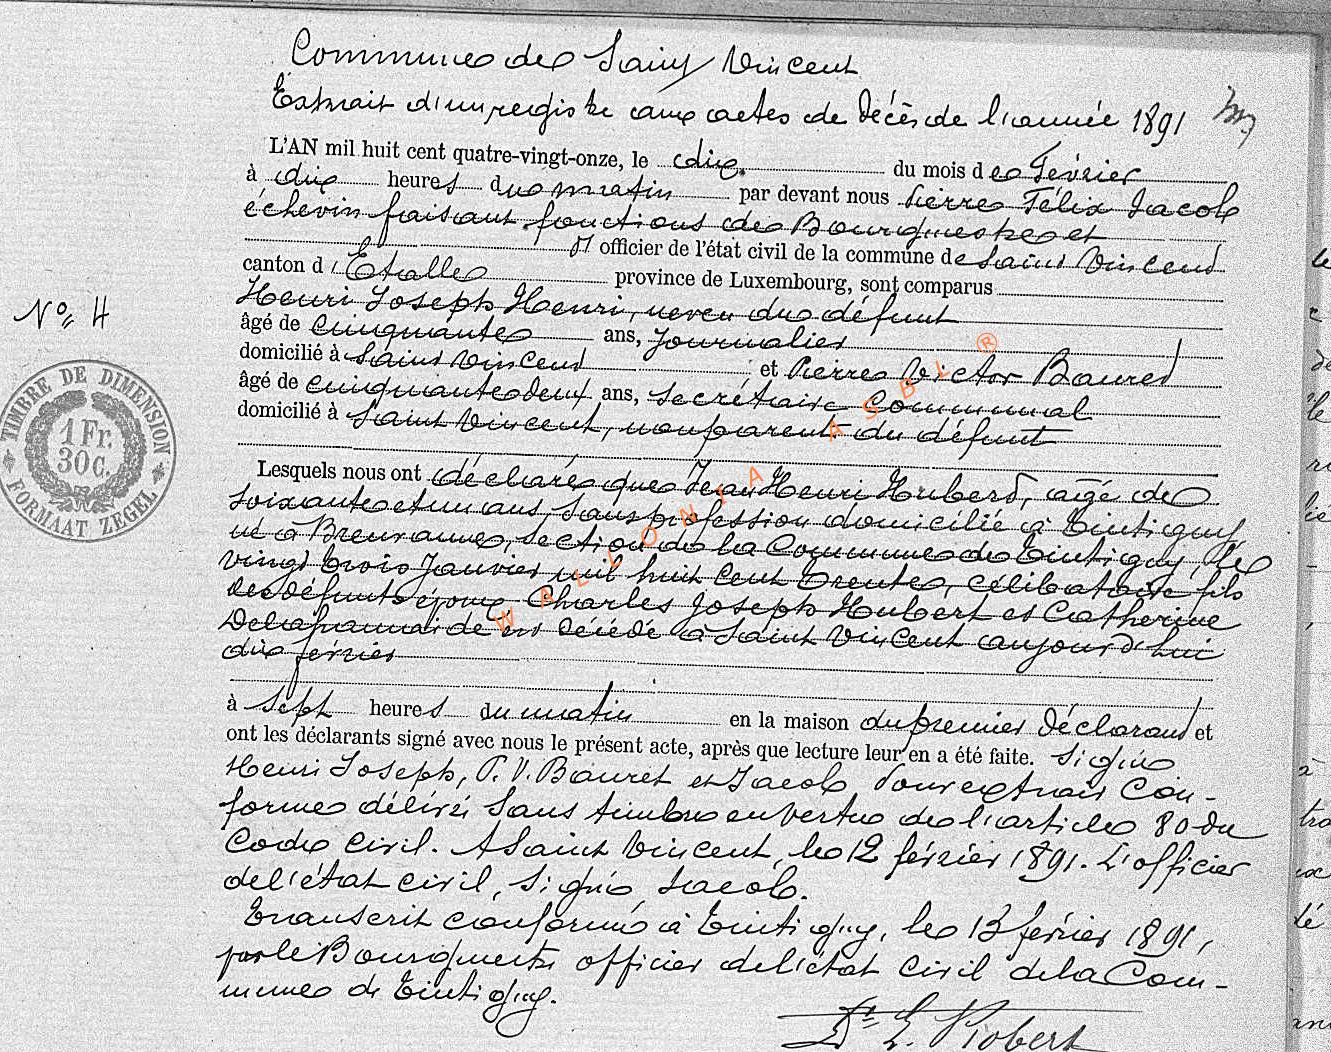 Commune de Saint Vincent
Extrait d'un registre aux actes de Décès de l'année 1891
L'AN mil huit cent quatre-vingt-onze, le dix du mois de Février
à dix heures du matin par devant nous Pierre Félix Jacob
échevin faisant fonctions de Bourgmestre et
officier de l'état civil de la commune de Saint Vincent
canton d'Etalle province de Luxembourg, sont comparus
Henri Joseph Henri, neveu du défunt
âgé de cinquante ans, journalier
domicilié à Saint Vincent et Pierre Victor Bauret
âgé de cinquante deux ans, secrétaire communal
domicilié à Saint Vincent, non parent du défunt
Lesquels nous ont déclaré que Jean Henri Hubert, âgé de
soixante et un ans, sans profession domicilié à Tintigny,
né à Breuvanne, section de la Commune de Tintigny, le
vingt trois Janvier mil huit cent trente, célibataire fils
des défunts époux Charles Joseph Hubert et Catherine
est décédé à Saint Vincent aujourd'hui
dix fevrier
à sept heures du matin en la maison du premier Déclarant et
ont les déclarants signé avec nous le présent acte, après que lecture leur en a été faite. Signé
Henri Joseph, P. V. Bauret et Jacob Pour extrait Con-
forme délivré sans timbre en vertu de l'article 80 du
Code civil. A Saint Vincent, le 12 février 1891. L'officier
de l'état civil, signé Jacob.
Transcrit conformé à Tintigny, le 13 février 1891,
par le Bourgmestre officier de l'état civil de la Com-
mune de Tintigny.
Dr. E. Robert
No 4
TIMBRE DE DIMENSION
1 Fr.
30C.
FORMAAT ZEGEL
WALLONIA ASBL ®